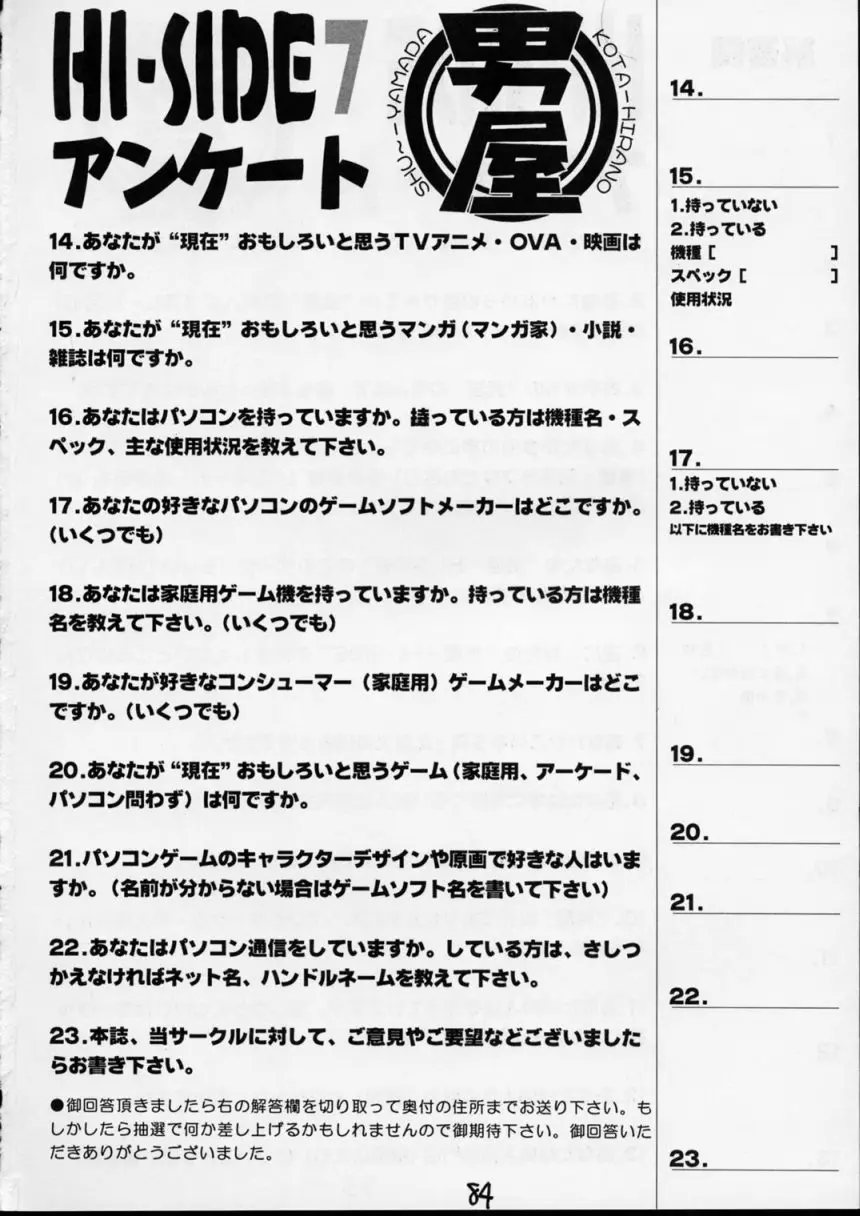 HI-SIDE7
アンケート
男屋
SHU〜-YAMADA
KOTA-HIRANO
14.あなたが“現在”おもしろいと思うTVアニメ・OVA・映画は
何ですか。
15.あなたが“現在”おもしろいと思うマンガ(マンガ家)・小説・
雑誌は何ですか。
16.あなたはパソコンを持っていますか。持っている方は機種名・ス
ペック、主な使用状況を教えて下さい。
17.あなたの好きなパソコンのゲームソフトメーカーはどこですか。
(いくつでも)
18.あなたは家庭用ゲーム機を持っていますか。持っている方は機種
名を教えて下さい。(いくつでも)
19.あなたが好きなコンシューマー(家庭用)ゲームメーカーはどこ
ですか。(いくつでも)
20.あなたが“現在”おもしろいと思うゲーム(家庭用、アーケード、
パソコン問わず)は何ですか。
21.パソコンゲームのキャラクターデザインや原画で好きな人はいま
すか。(名前が分からない場合はゲームソフト名を書いて下さい)
22.あなたはパソコン通信をしていますか。している方は、さしつ
かえなければネット名、ハンドルネームを教えて下さい。
23.本誌、当サークルに対して、ご意見やご要望などございました
らお書き下さい。
●御回答頂きましたら右の解答欄を切り取って奥付の住所までお送り下さい。も
しかしたら抽選で何か差し上げるかもしれませんので御期待下さい。御回答いた
だきありがとうございました。
84
14.
15.
1.持っていない
2.持っている
機種 [ ]
スペック [ ]
使用状況
16.
17.
1.持っていない
2.持っている
以下に機種名をお書き下さい
18.
19.
20.
21.
22.
23.